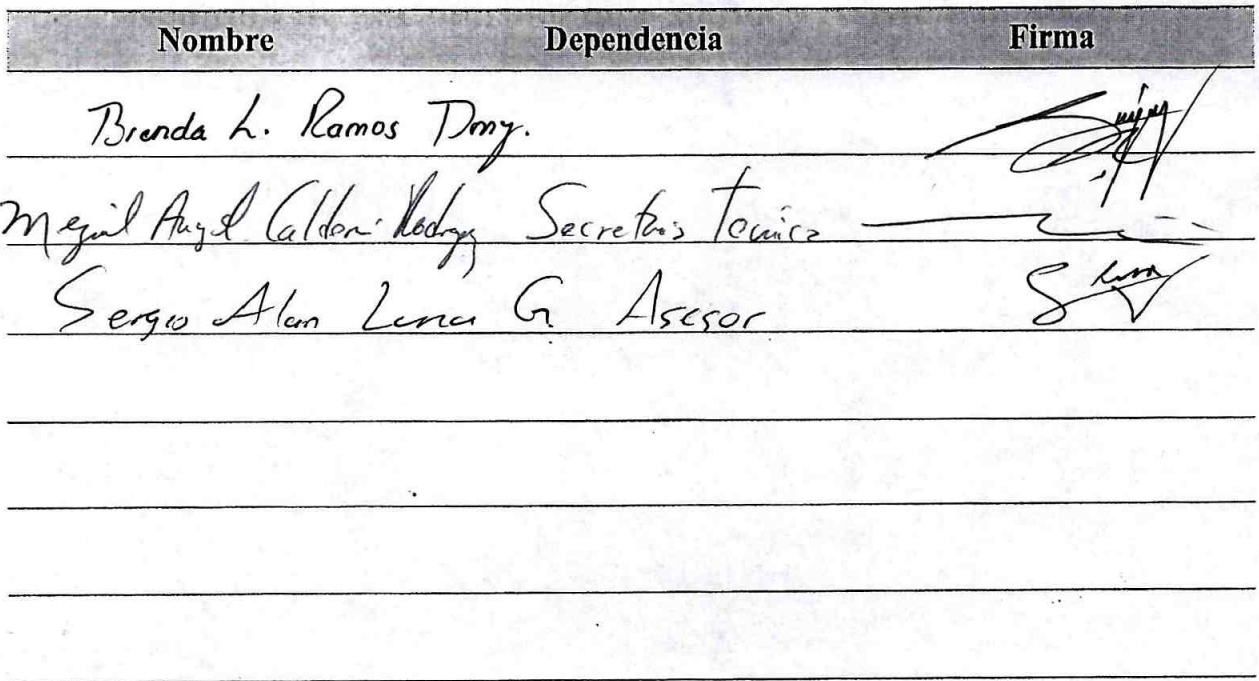 Nombre Dependencia Firma
Brenda L. Ramos Dmg.
Miguel Angel Calderon Rodrgz Secretario Tecnico
Sergio Alan Luna G. Asesor